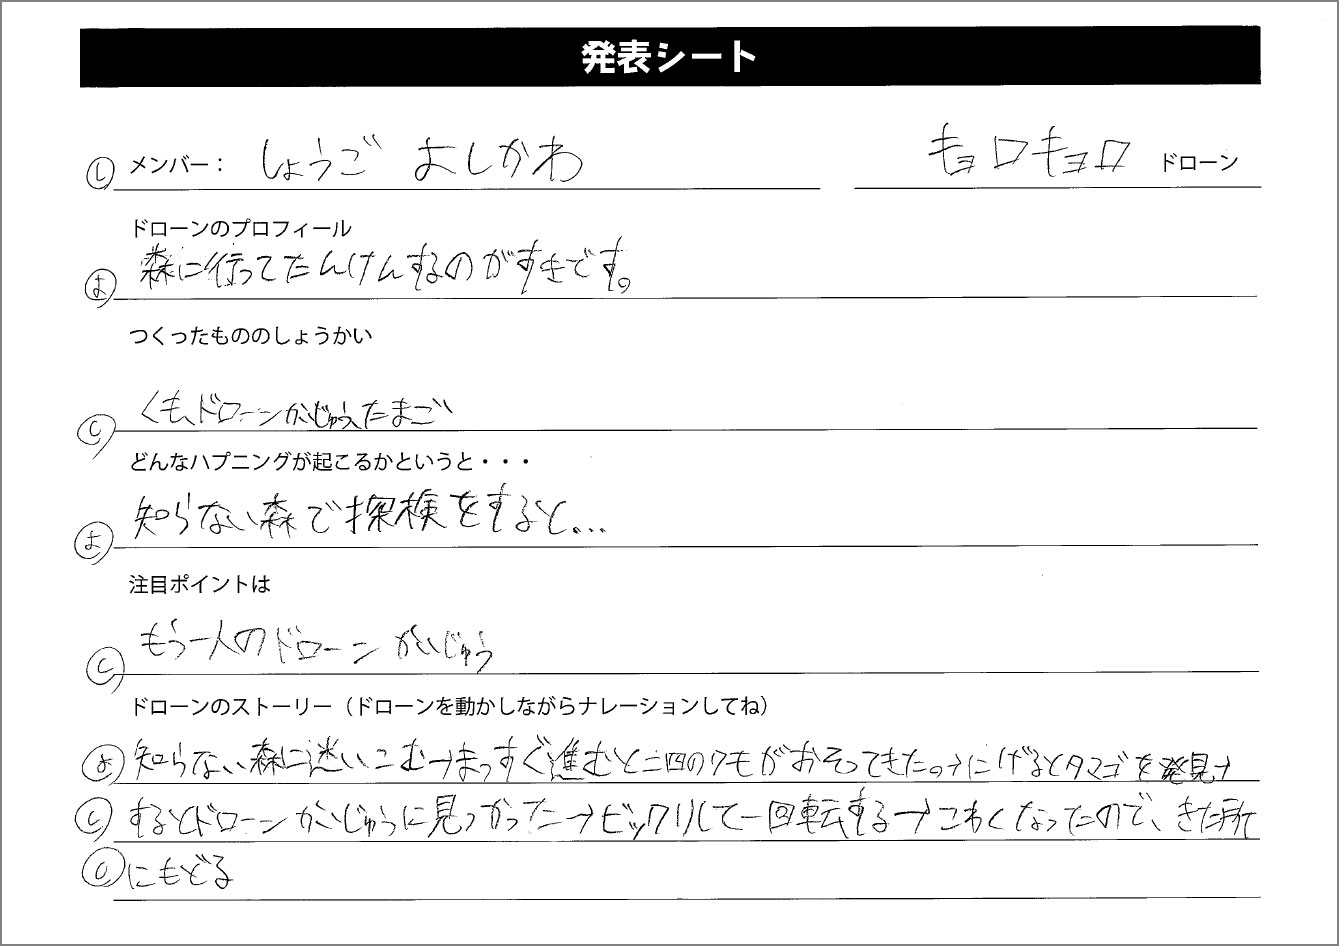 発表シート
し メンバー： しょうご よしかわ キョロキョロ ドローン
ドローンのプロフィール
よ 森に行ってたんけんするのがすきです。
つくったもののしょうかい
し くも、ドローンかいじゅう、たまご
どんなハプニングが起こるかというと・・・
よ 知らない森で探検をすると…
注目ポイントは
し もう一人のドローン かいじゅう
ドローンのストーリー（ドローンを動かしながらナレーションしてね）
よ 知らない森に迷いこむ→まっすぐ進むと二匹のクモがおそってきた。→にげるとタマゴを発見→
し するとドローンかいじゅうに見つかった→ビックリして一回転する→こわくなったので、きた所
にもどる